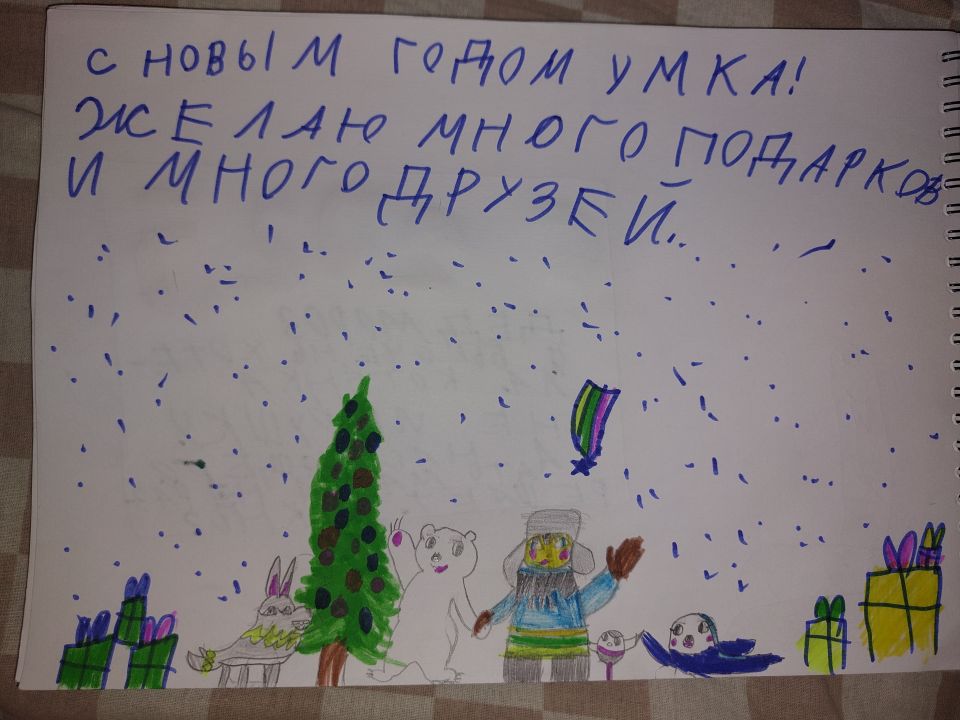 С НОВЫМ ГОДОМ УМКА!
ЖЕЛАЮ МНОГО ПОДАРКОВ
И МНОГО ДРУЗЕЙ..